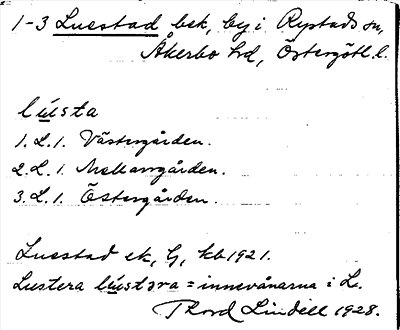 1-3 Lusstad bsk, by i Rystads sn,
Åkerbo hd, Östergötl. l.
lústa
1. L. 1. Västergården.
2. L. 1. Mellangården.
3. L. 1. Östergården.
Lusstad ek, G, kb 1921.
Lustera lústəra = innevånarna i L.
Thord Lindell 1928.